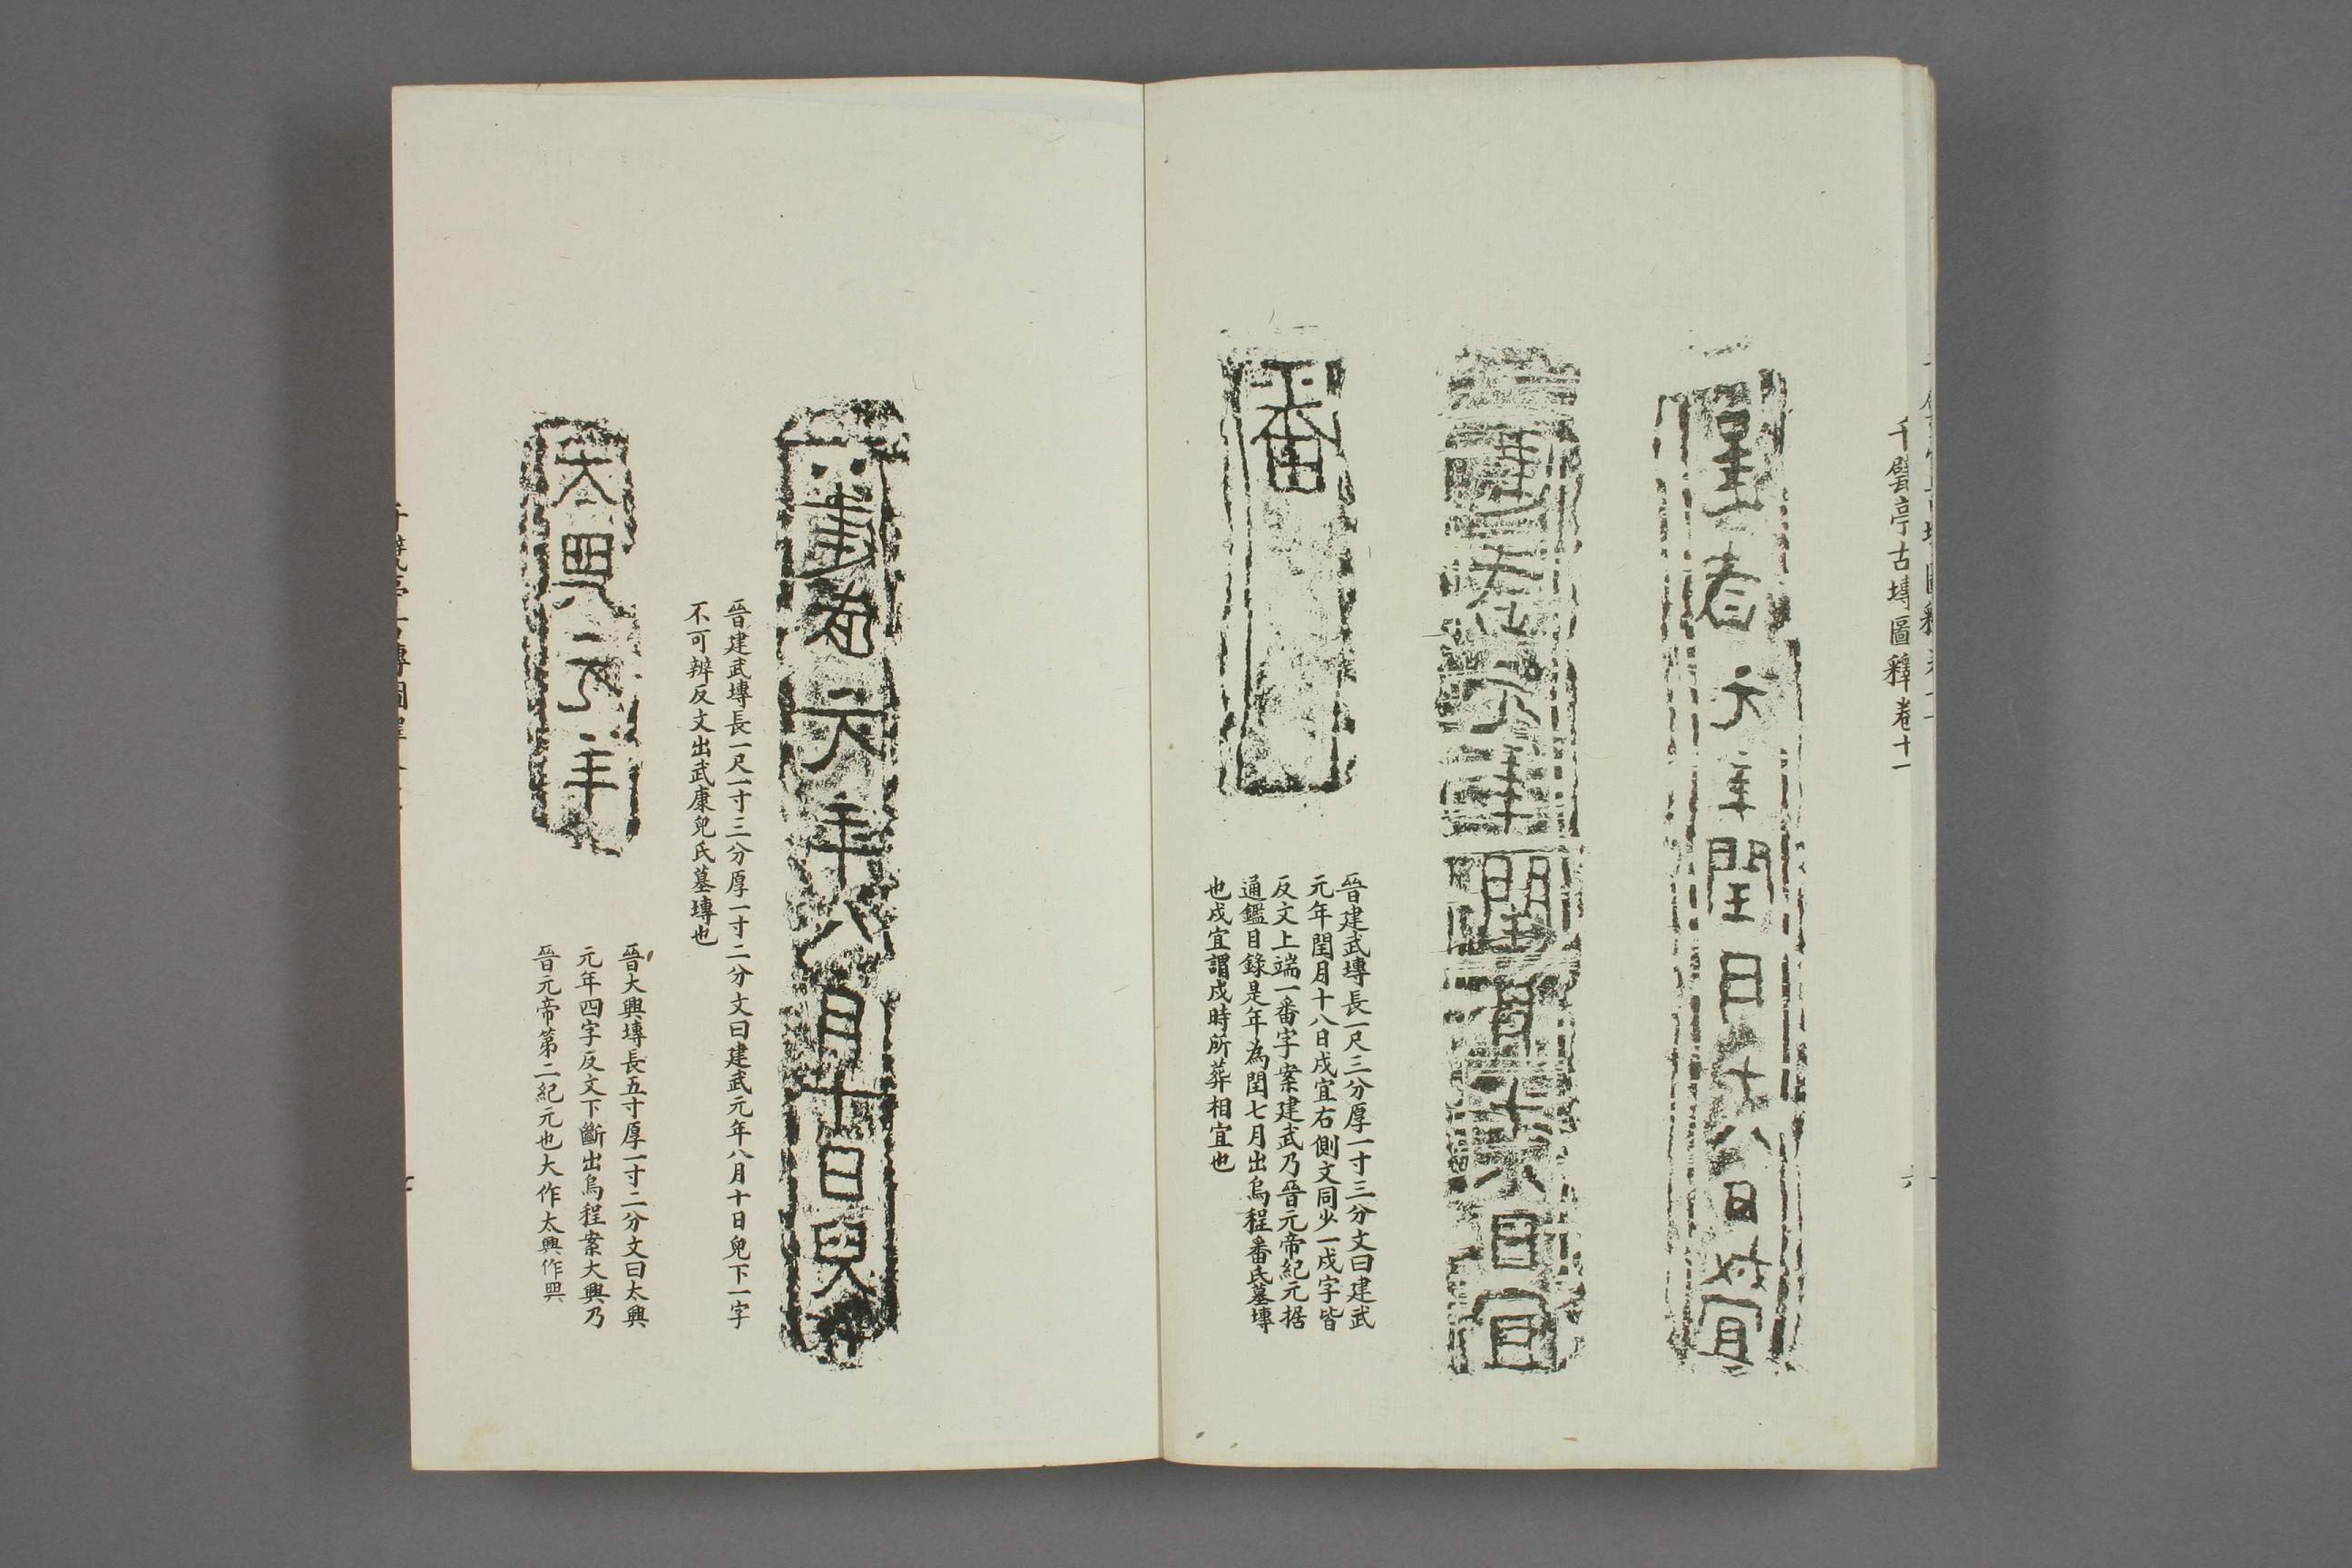 千甓亭古塼圖釋卷十一
六
建武元年閏月十八日戌宜
建武元年閏月十八日宜
番
晉建武塼長一尺三分厚一寸三分文曰建武
元年閏月十八日戌宜右側文同少一戌字皆
反文上端一番字案建武乃晉元帝紀元据
通鑑目錄是年為閏七月出烏程番氏墓塼
也戌宜謂戌時所葬相宜也
建武元年八月十日兒
晉建武塼長一尺一寸三分厚一寸二分文曰建武元年八月十日兒下一字
不可辨反文出武康兒氏墓塼也
太興元年
晉大興塼長五寸厚一寸二分文曰太興
元年四字反文下斷出烏程案大興乃
晉元帝第二紀元也大作太興作㒷